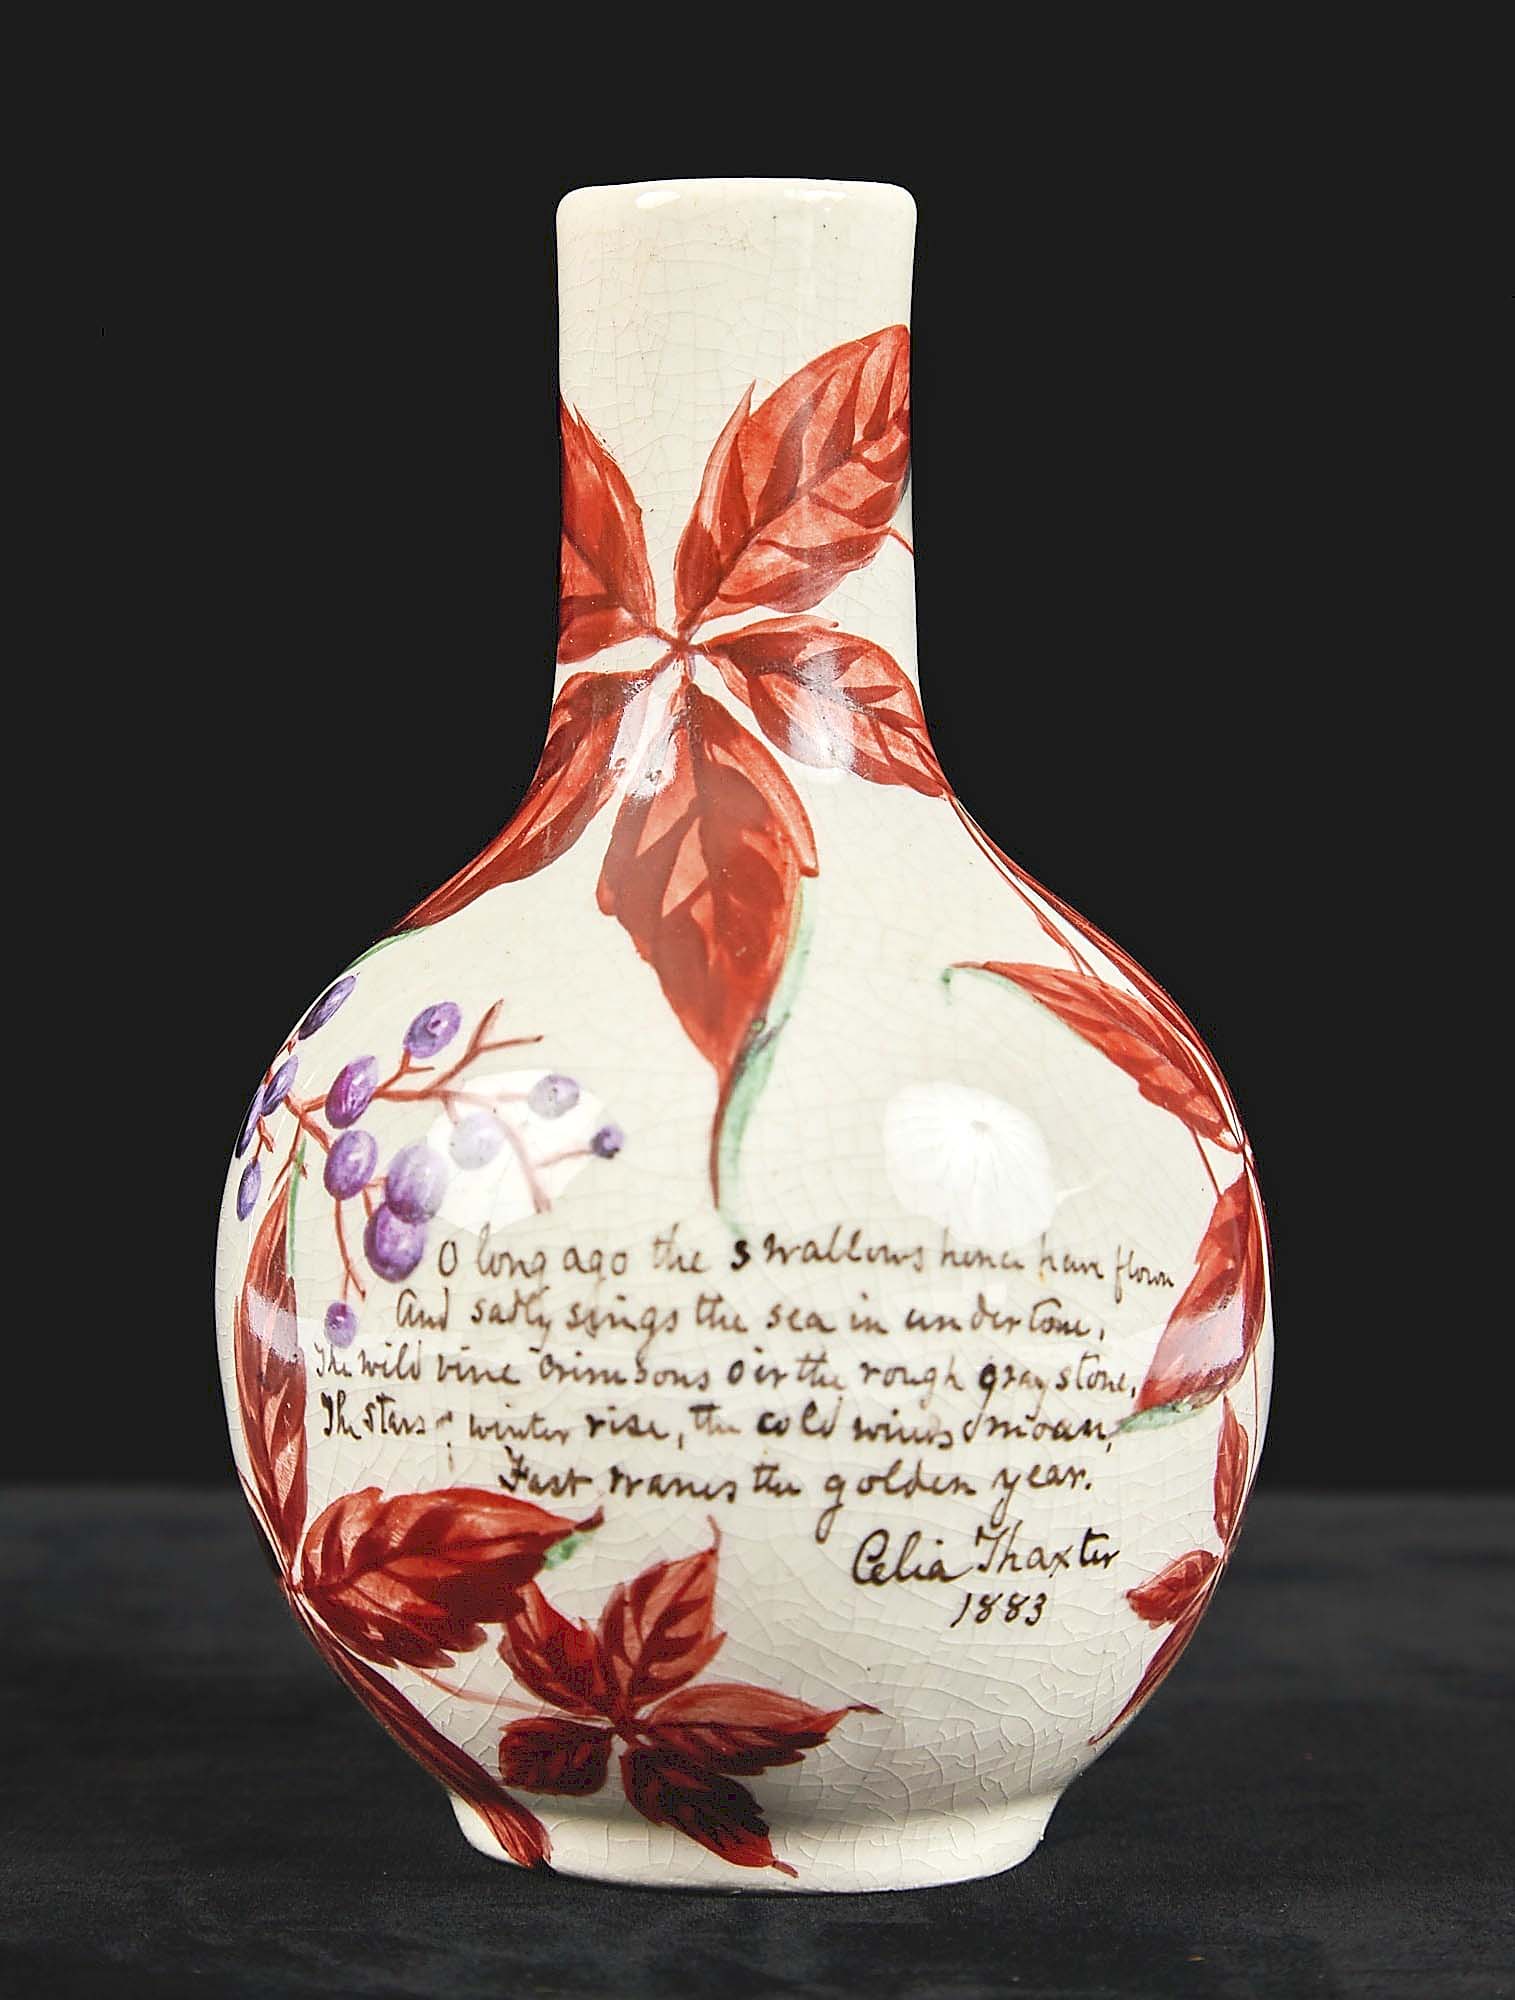 O long ago the swallows hence have flown
And sadly sings the sea in undertone,
The wild vine crimsons o'er the rough gray stone,
The stars of winter rise, the cold winds moan,
Fast wanes the golden year.
Celia Thaxter
1883